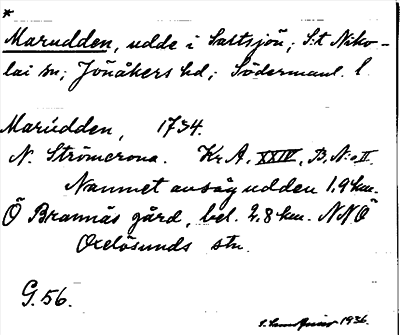 *
Marudden, udde i Saltsjön; S:t Niko-
lai sn; Jönåkers hd; Södermanl. l.
Marúdden, 1734.
N. Strömcrona. Kr. A. XXIV, B. N:o II.
Namnet avsåg udden 1,9 km.
Ö Brannäs gård, bel. 2,8 km. NNÖ
Oxelösunds stn.
G. 56.
1936.